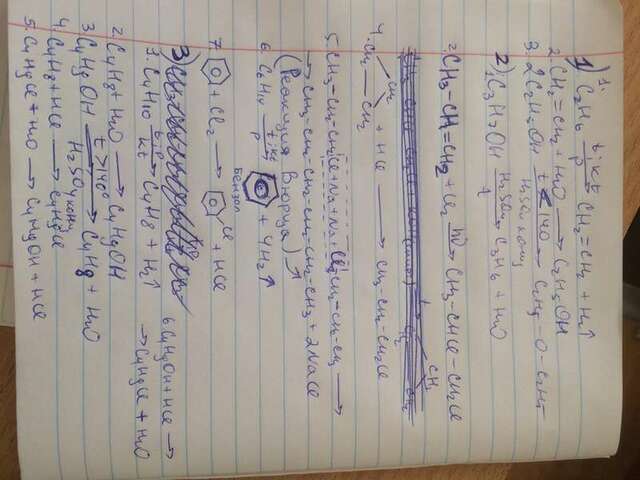 1) 1. C2H6 t; kt → p CH2=CH2 + H2↑
2. CH2=CH2 + H2O → C2H5OH
3. 2C2H5OH t<140 → H2SO4 конц C2H5-O-C2H5
2) 1. C3H7OH H2SO4 → t C3H6 + H2O
2. CH3-CH=CH2 + Cl2 hν → CH3-CHCl-CH2Cl
4. CH2 - CH2 CH2 + HCl → CH2-CH2-CH2Cl
5. CH3-CH2-CH2Cl + Na + Na + Cl CH2-CH2-CH3 →
→ CH3-CH2-CH2-CH2-CH2-CH3 + 2NaCl
(Реакция Вюрца)↑
6. C6H14 t; kt → p + 4H2↑
Бензол
7. + Cl2 → Cl + HCl
3)
1. C4H10 t; p → kt C4H8 + H2↑
2. C4H8 + H2O → C4H9OH
3 C4H9OH t>140° → H2SO4 конц C4H8 + H2O
4. C4H8 + HCl → C4H9Cl
5. C4H9Cl + H2O → C4H9OH + HCl
6 C4H9OH + HCl →
→ C4H9Cl + H2O